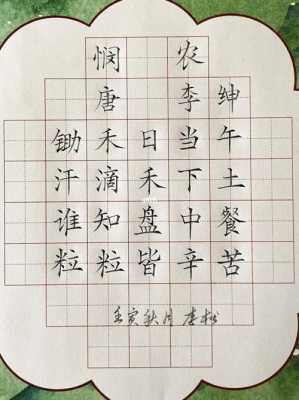 悯农
唐 李绅
锄禾日当午
汗滴禾下土
谁知盘中餐
粒粒皆辛苦
壬寅秋月 李松